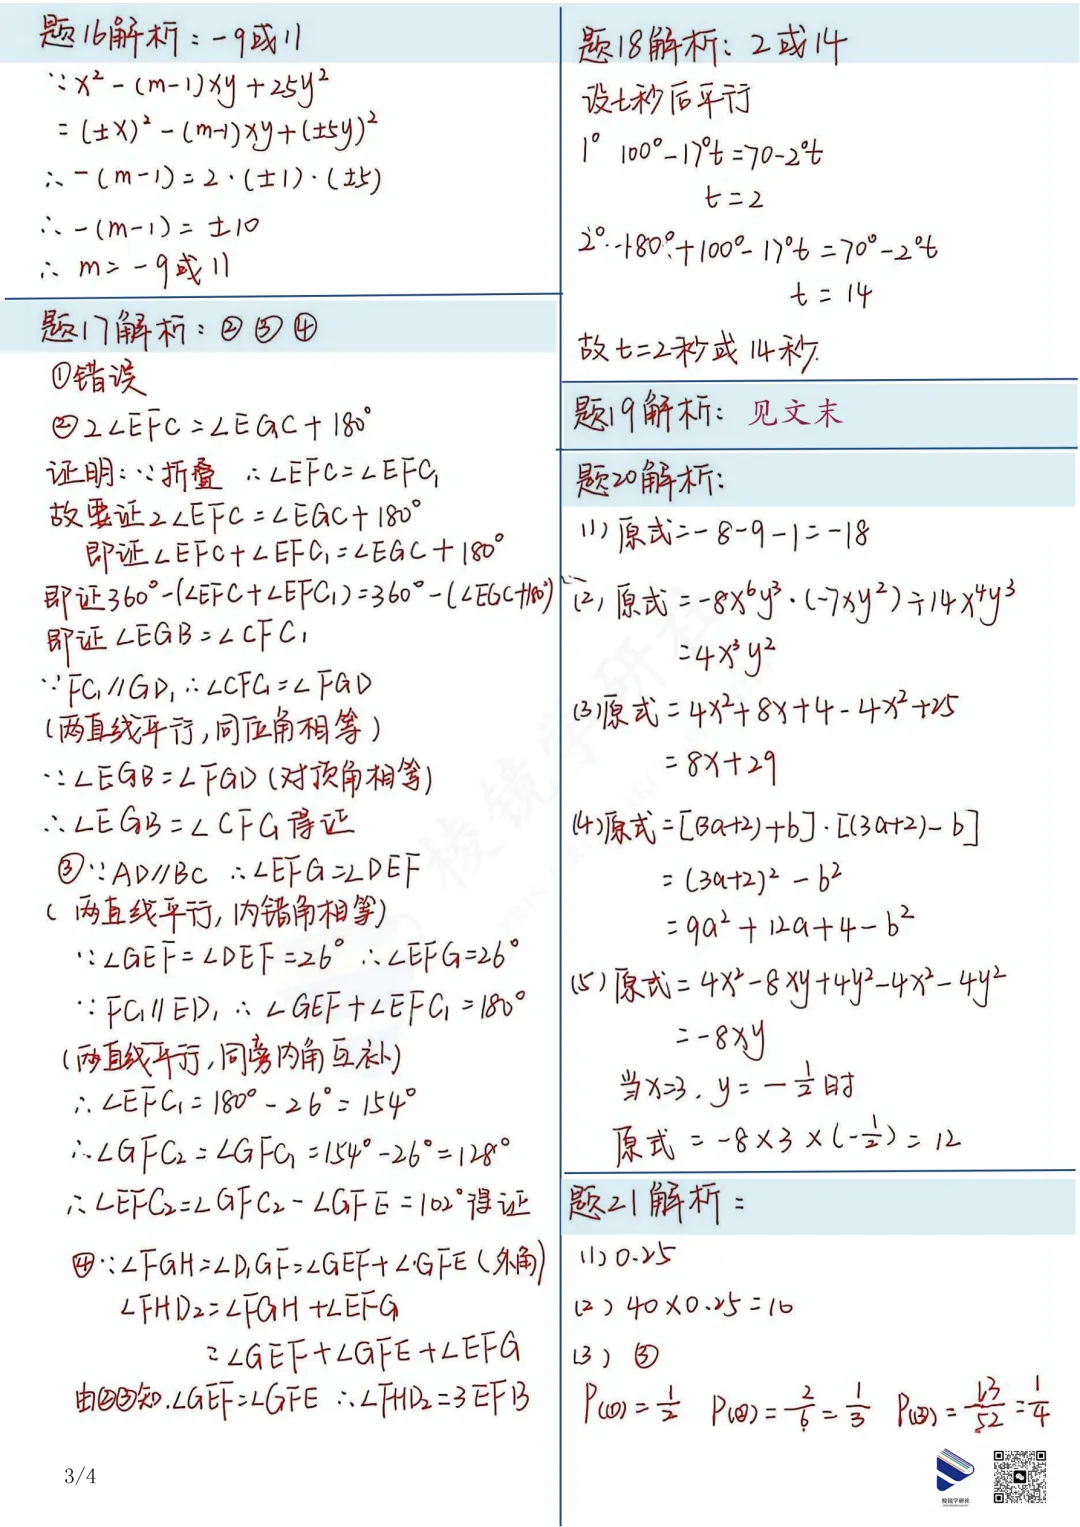 题16解析：-9或11
∵x²-(m-1)xy+25y²
=(±x)²-(m-1)xy+(±5y)²
∴-(m-1)=2·(±1)·(±5)
∴-(m-1)=±10
∴ m=-9或11
题17解析：②③④
①错误
②2∠EFC=∠EGC+180°
证明：∵折叠 ∴∠EFC=∠EFC₁
故要证2∠EFC=∠EGC+180°
即证∠EFC+∠EFC₁=∠EGC+180°
即证360°-(∠EFC+∠EFC₁)=360°-(∠EGC+180°)
即证∠EGB=∠CFC₁
∵FC₁//GD₁∴∠CFC₁=∠FGD
(两直线平行,同位角相等)
∵∠EGB=∠FGD(对顶角相等)
∴∠EGB=∠CFC₁得证
③∵AD//BC ∴∠EFG=∠DEF
(两直线平行,内错角相等)
∵∠GEF=∠DEF=26° ∴∠EFG=26°
∵FC₁//ED₁∴∠GEF+∠EFC₁=180°
(两直线平行,同旁内角互补)
∴∠EFC₁=180°-26°=154°
∴∠GFC₂=∠GFC₁=154°-26°=128°
∴∠EFC₂=∠GFC₂-∠GFE=102°得证
④∵∠FGH=∠D₁GF=∠GEF+∠GFE(外角)
∠FHD₂=∠FGH+∠EFG
=∠GEF+∠GFE+∠EFG
由②③知.∠GEF=∠GFE ∴∠FHD₂=3EFB
3/4
题18解析：2或14
设t秒后平行
1° 100°-17°t=70-2°t
t=2
2°-180°+100°-17°t=70°-2°t
t=14
故t=2秒或14秒.
题19解析：见文末
题20解析：
(1)原式=-8-9-1=-18
(2)原式=-8x⁶y³·(-7xy²)÷14x⁴y³
=4x³y²
(3)原式=4x²+8x+4-4x²+25
=8x+29
(4)原式=[(3a+2)+b]·[(3a+2)-b]
=(3a+2)²-b²
=9a²+12a+4-b²
(5)原式=4x²-8xy+4y²-4x²-4y²
=-8xy
当x=3.y=-1/2时
原式=-8×3×(-1/2)=12
题21解析：
(1)0.25
(2)40×0.25=10
(3)③
P(①)=1/2 P(②)=2/6=1/3 P(③)=13/52=1/4
棱镜学研社